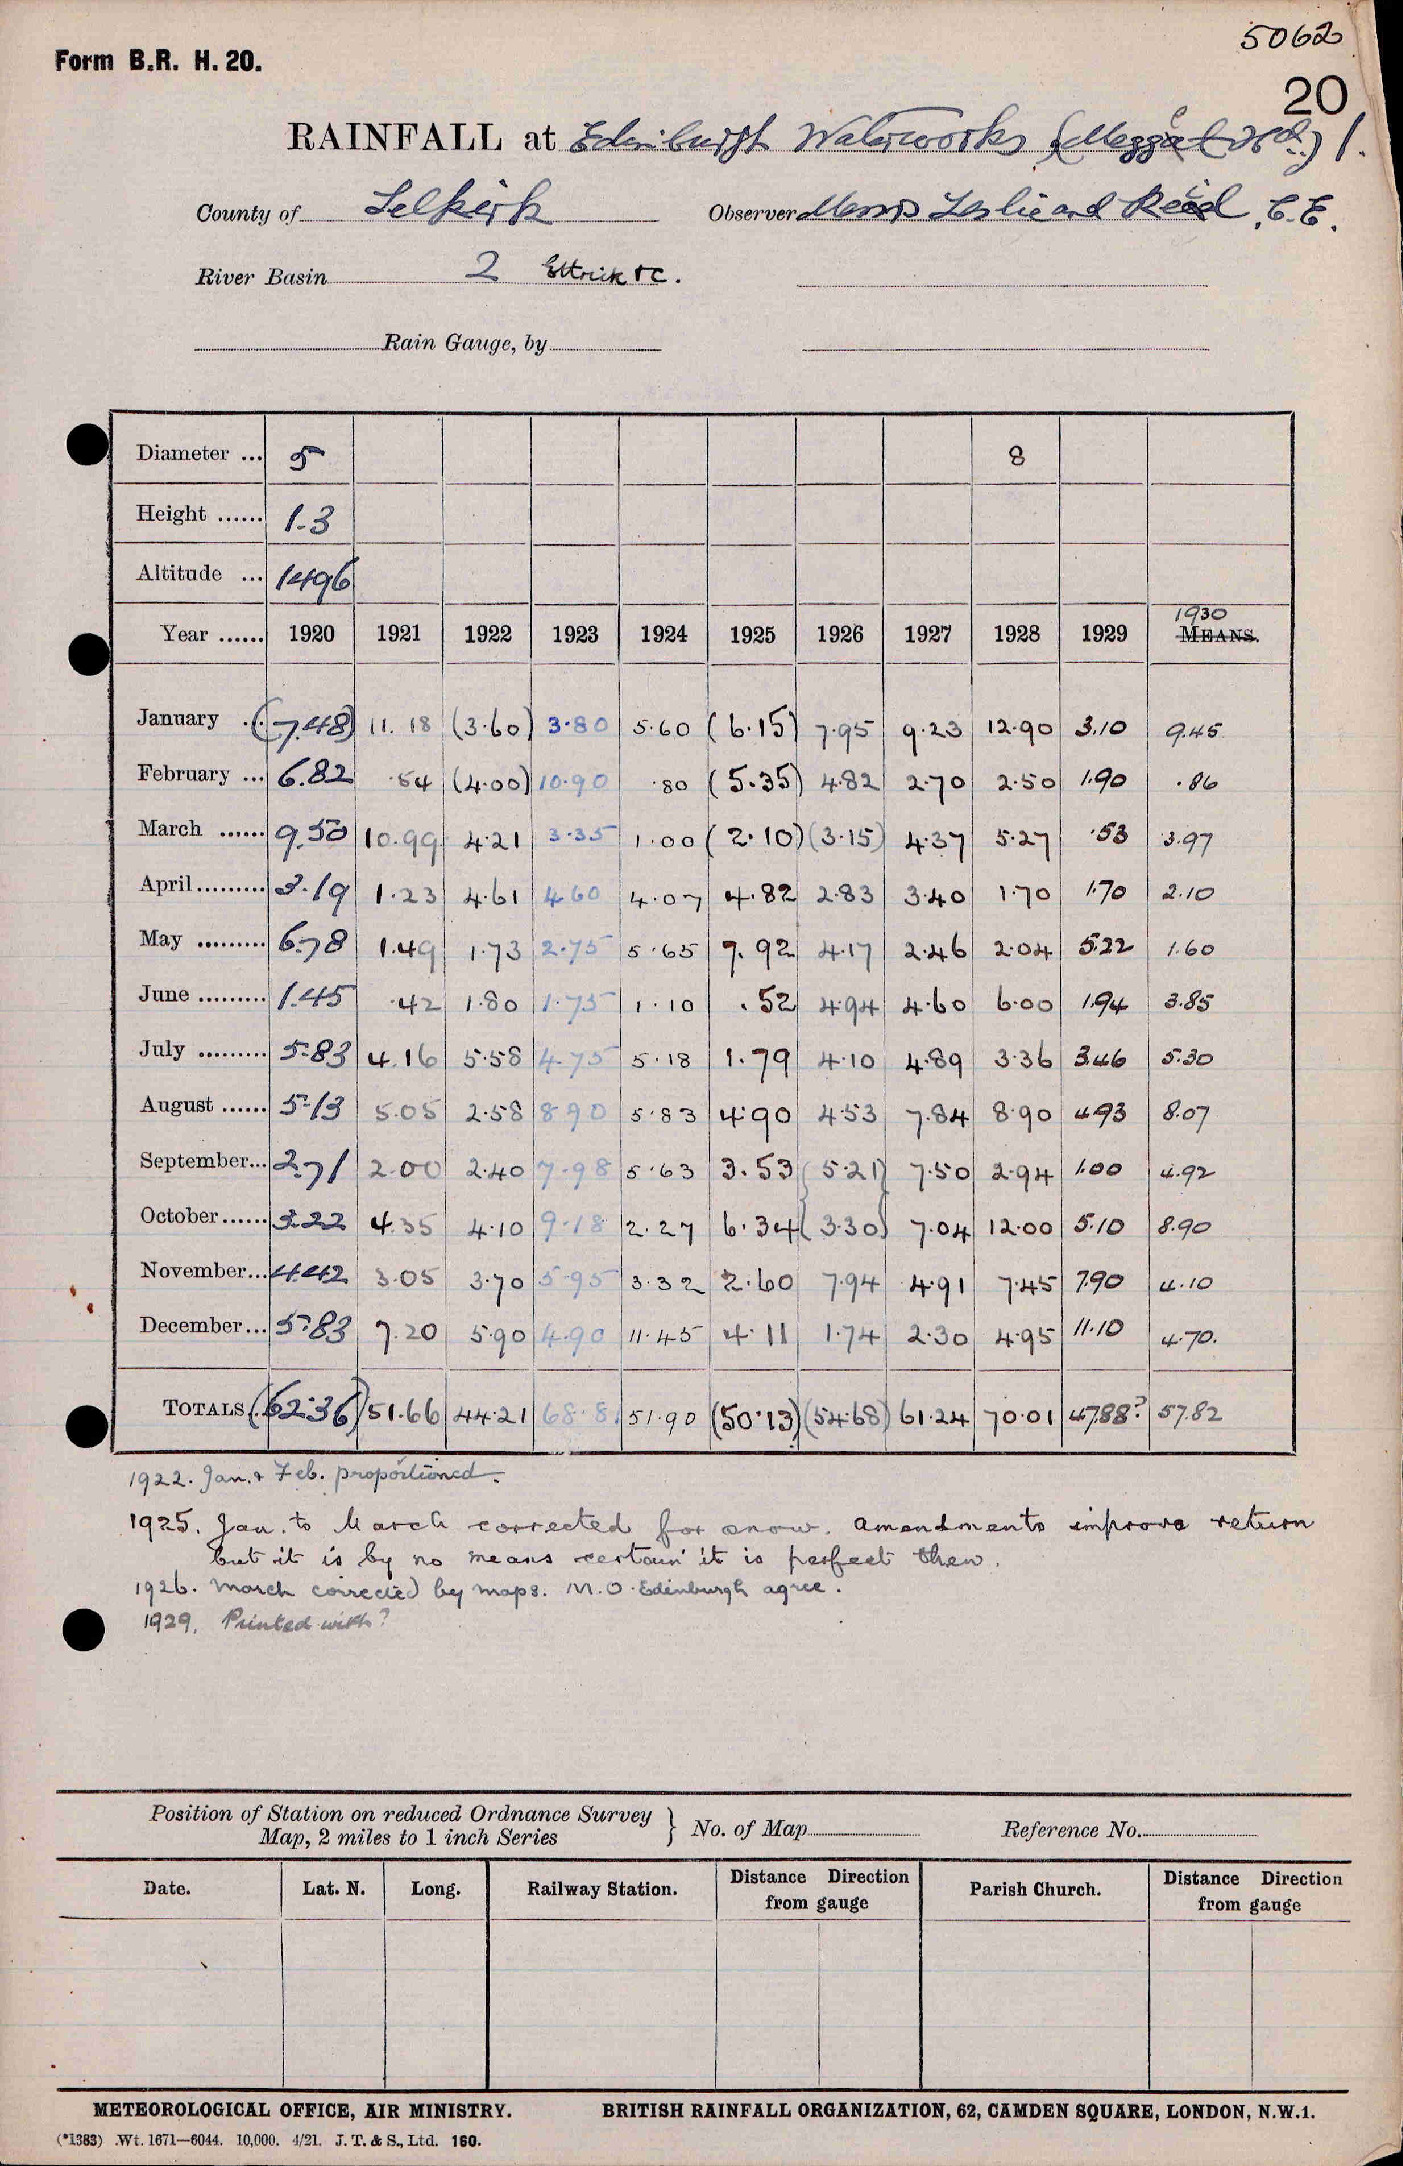 5062
Form B.R. H. 20.
20
RAINFALL at Edinburgh Waterworks (Megget Rd.) 1.
County of Selkirk Observer Messrs Leslie and Reid, C.E.
River Basin 2 Ettrick &c.
Rain Gauge, by
Diameter ... 5 8
Height ...... 1.3
Altitude ... 1496
Year ...... 1920 1921 1922 1923 1924 1925 1926 1927 1928 1929 1930 MEANS.
January ... (7.48) 11.18 (3.60) 3.80 5.60 (6.15) 7.95 9.23 12.90 3.10 9.45
February ... 6.82 .54 (4.00) 10.90 .80 (5.35) 4.82 2.70 2.50 1.90 .86
March ...... 9.50 10.99 4.21 3.35 1.00 (2.10) (3.15) 4.37 5.27 .53 3.97
April ......... 3.19 1.23 4.61 4.60 4.07 4.82 2.83 3.40 1.70 1.70 2.10
May ......... 6.78 1.49 1.73 2.75 5.65 7.92 4.17 2.46 2.04 5.22 1.60
June ......... 1.45 .42 1.80 1.75 1.10 .52 4.94 4.60 6.00 1.94 3.85
July ......... 5.83 4.16 5.58 4.75 5.18 1.79 4.10 4.89 3.36 3.46 5.30
August ...... 5.13 5.05 2.58 8.90 5.83 4.90 4.53 7.84 8.90 4.93 8.07
September... 2.71 2.00 2.40 7.98 5.63 3.53 (5.21) 7.50 2.94 1.00 4.92
October ...... 3.22 4.35 4.10 9.18 2.27 6.34 (3.30) 7.04 12.00 5.10 8.90
November... 4.42 3.05 3.70 5.95 3.32 2.60 7.94 4.91 7.45 7.90 4.10
December... 5.83 7.20 5.90 4.90 11.45 4.11 1.74 2.30 4.95 11.10 4.70.
TOTALS (62.36) 51.66 44.21 68.81 51.90 (50.13) (54.68) 61.24 70.01 47.88? 57.82
1922. Jan. & Feb. proportioned.
1925. Jan. to March corrected for snow. Amendments improve return
but it is by no means certain it is perfect then.
1926. March corrected by maps. M.O. Edinburgh agree.
1929. Printed with?
Position of Station on reduced Ordnance Survey
Map, 2 miles to 1 inch Series } No. of Map Reference No.
Date. Lat. N. Long. Railway Station. Distance Direction from gauge Parish Church. Distance Direction from gauge
METEOROLOGICAL OFFICE, AIR MINISTRY. BRITISH RAINFALL ORGANIZATION, 62, CAMDEN SQUARE, LONDON, N.W.1.
(*1383) .Wt. 1671—6044. 10,000. 4/21. J. T. & S., Ltd. 160.